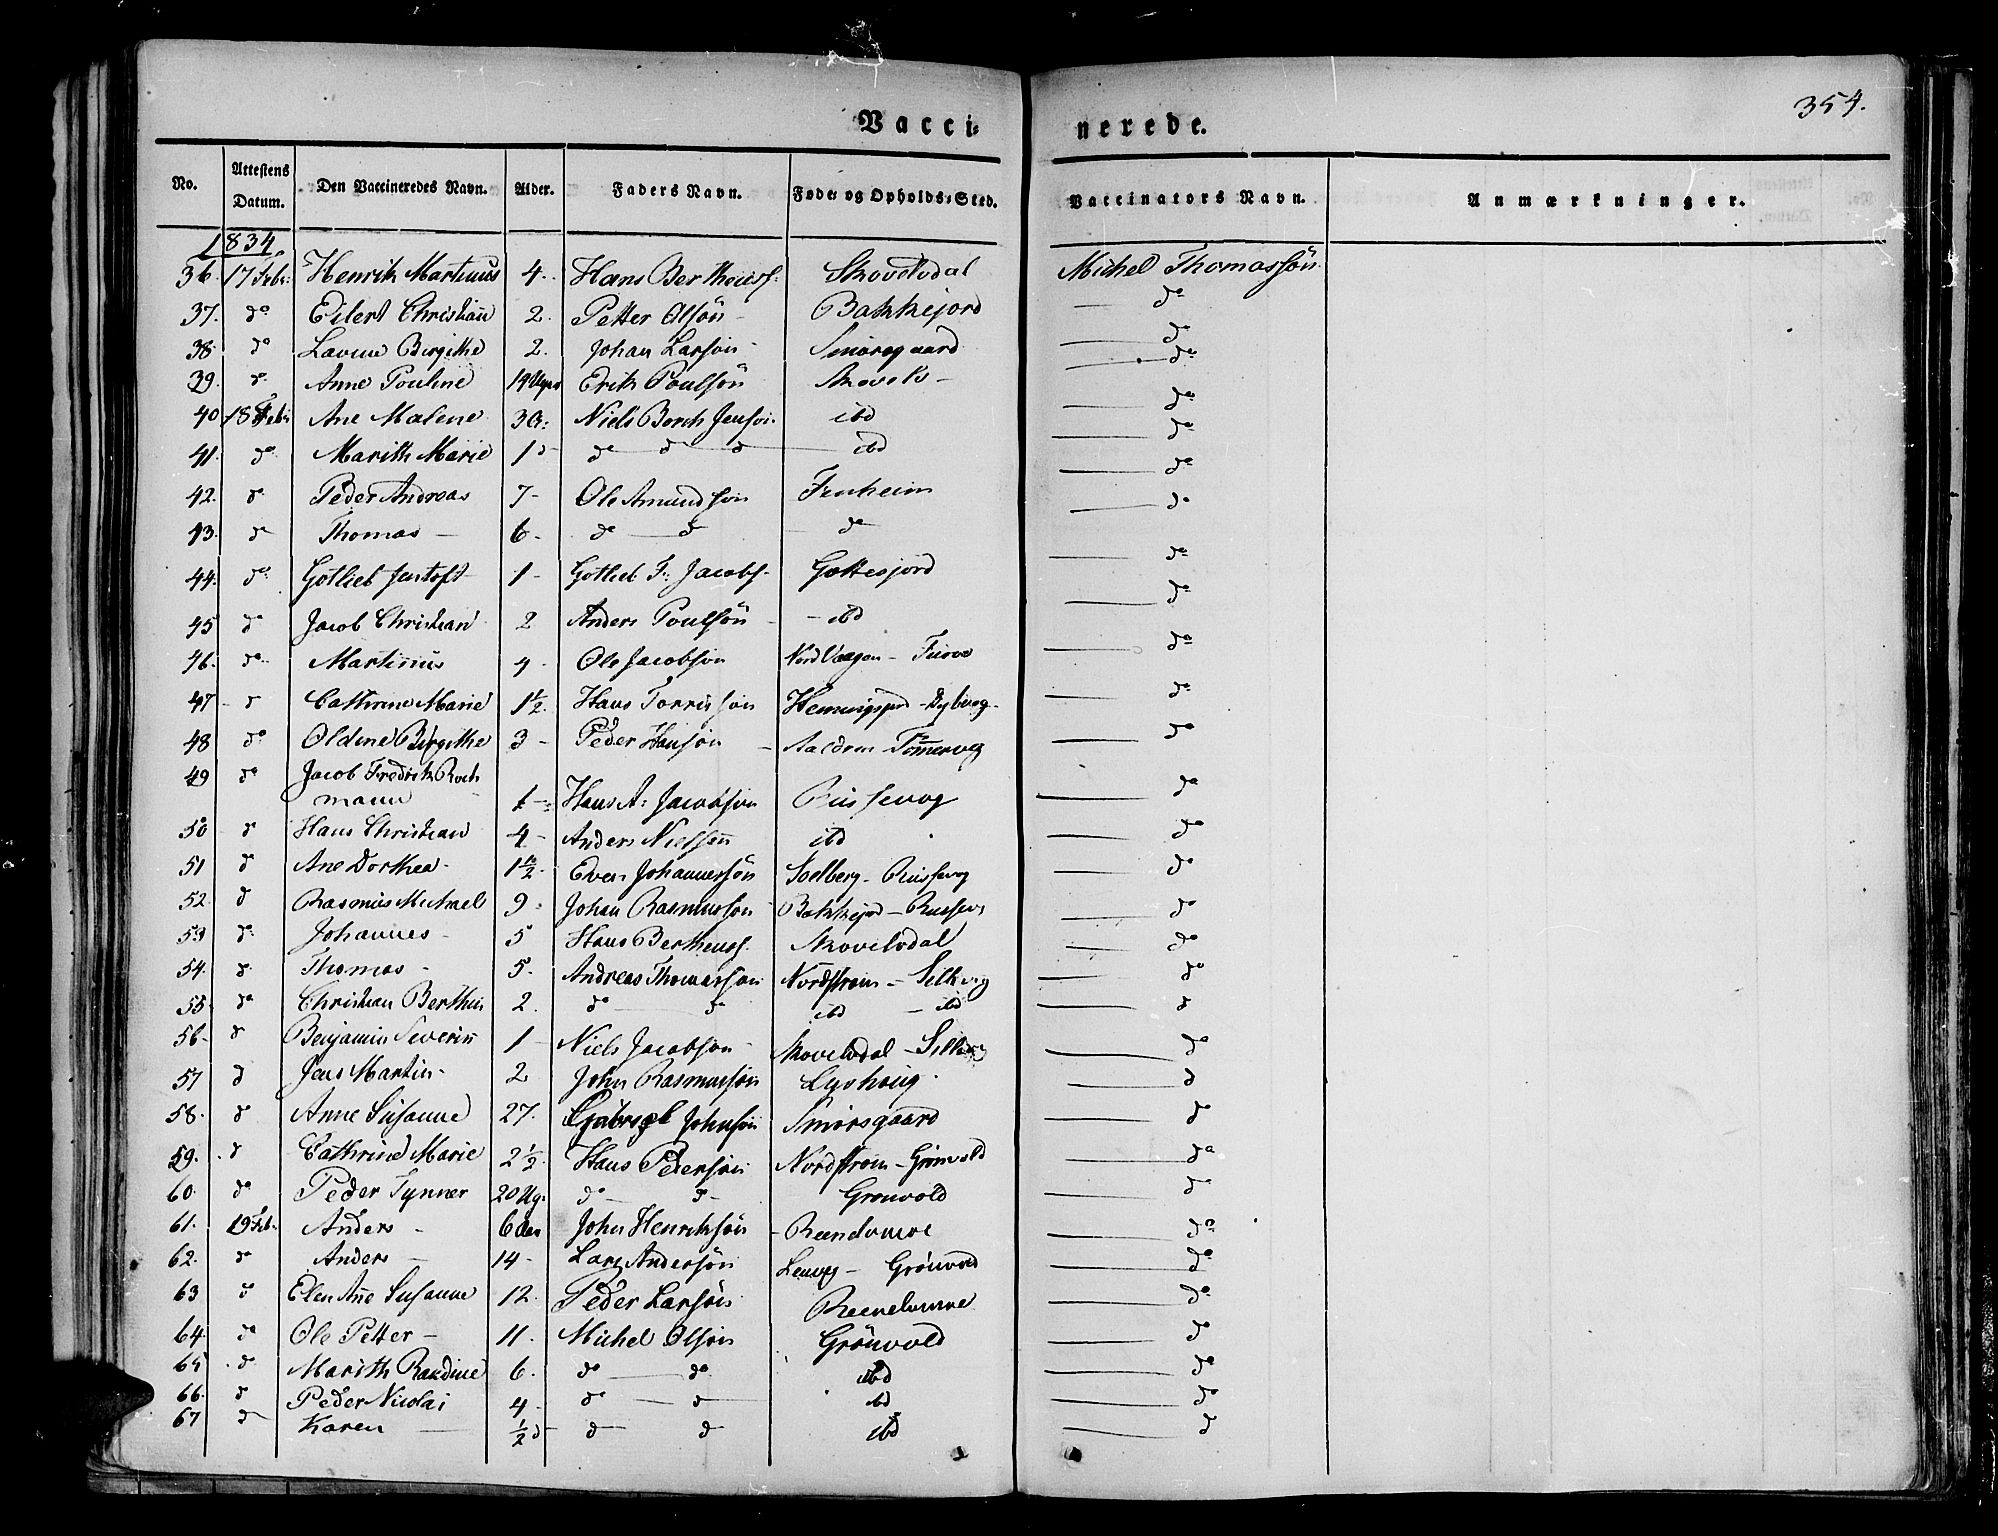 354.
Vacci= nerede.
No. Attestens Datum. Den Vaccineredes Navn. Alder. Faders Navn. Føde= og Opholds=Sted. Vaccinators Navn. Anmærkninger.
1834.
36. 17 Febr: Henrik Martinus 4. Hans Bertheusf. Skovelvdal Michel Thomassön
37. do Eilert Christian 2. Petter Olsön Bakkejord do
38 do Lavine Birgithe 2. Johan Larsön Smörsgaard do
39. do Anne Pouline 14 Uger Erik Poulsön do
40 18 Febr Ane Malene 3 Niels Borch Jensön ibd do
41. do Marith Marie 1 d do d d ibd do
42. do Peder Andreas 7 Ole Amundsön do
43. do Thomas 6 do d do do
44. do Gotlieb Jentoft 1 Gotlieb F: Jacobs. Gottesjord do
45 do Jacob Christian 2 Anders Poulsön ibd do
46. do Martinus 4 Ole Jacobsön Nord Vaagen do
47 d Cathrine Marie 1½ Hans Torrissön do
48 do Oldine Birgithe 3 Peder Hansön do
49 do Jacob Fredrik Roch
mann Hans A: Jacobsön Russevog do
50 d Hans Christian 4 Anders Nielsön ibd do
51 d Ane Dorthea 1½ Even Johannesön Soelberg - Russevog do
52. d Rasmus Michael 9 Johan Rasmusson Bakkejord - Russev do
53 do Johannes 5 Hans Bertheusf. Skovelvdal do
54. d. Thomas 5. Andreas Thomassön Nordstrøm - Silkvog do
55 do Christian Berthin 2. do do ibd - ibd d
56 d Benjamin Severin 1 Niels Jacobsön Skovelvdal - do
57 d Jens Martin 2 John Rasmussön Lyshoug d
58. d Anne Susanne 27. Gabriel Johnsön Smörsgaard do
59. d Cathrine Marie 2½ Hans Pedersön Nordstrøm - Grönvold do
60. do Peder Tynner 20 Ug. do d Gronvold do
61. 19 Feb. Anders 6 Aar John Henriksön do
62. d Anders 14 Lars Andersön Grönvold do
63 d Elen Ane Susanne 12. Peder Larsön do
64. do Ole Petter 11. Michel Olsön Grönvold do
65 do Marith Randine 6. do do ibd do
66. d Peder Nicolai 4 do d ibd do
67 d Karen ½ d d d ibd d